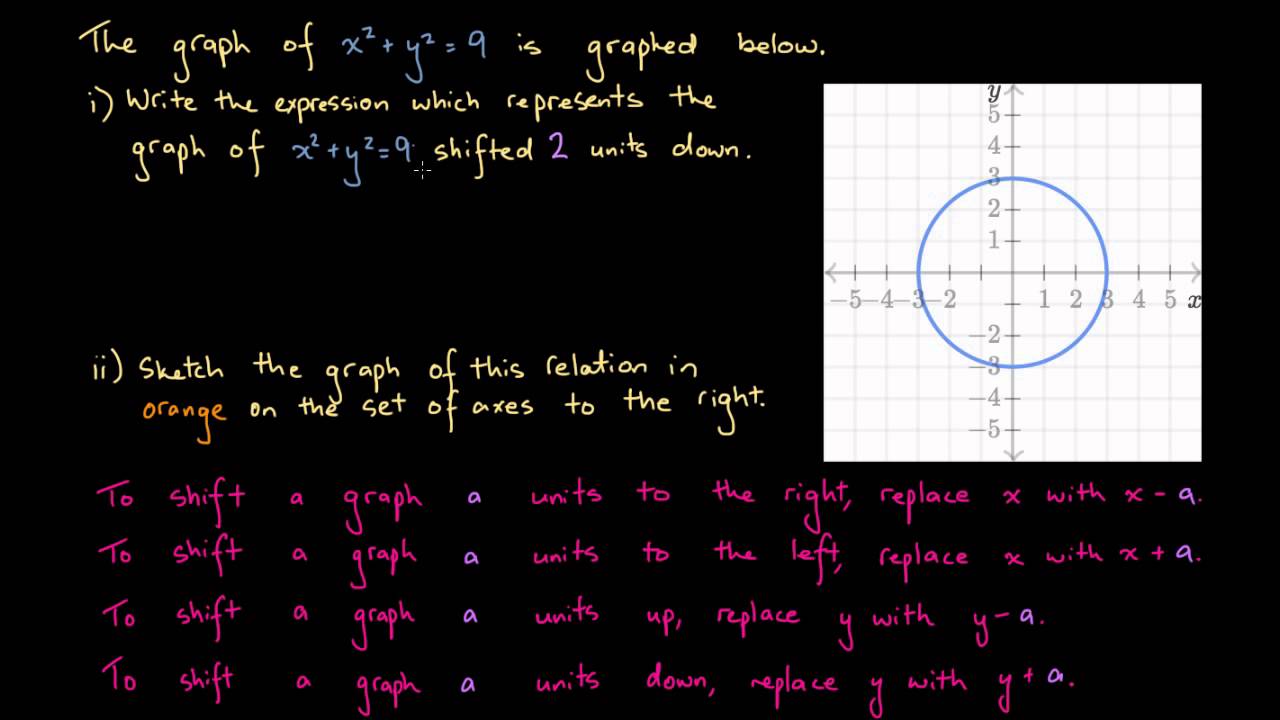 The graph of x² + y² = 9 is graphed below.
i) Write the expression which represents the
graph of x² + y² = 9 shifted 2 units down.
ii) Sketch the graph of this relation in
orange on the set of axes to the right.
y
5
4
3
2
1
-5 -4 -3 -2 1 2 3 4 5 x
-2
-3
-4
-5
To shift a graph a units to the right, replace x with x - a.
To shift a graph a units to the left, replace x with x + a.
To shift a graph a units up, replace y with y - a.
To shift a graph a units down, replace y with y + a.